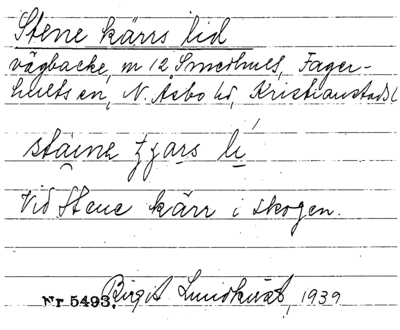 Stene kärrs lid
vägbacke, m 12 Smedhult, Fager-
hults sn, N. Åsbo hd, Kristianstads l
staine ʒjars li
Vid Stene kärr i skogen.
Nr 5493. Birgit Lundkvist, 1939